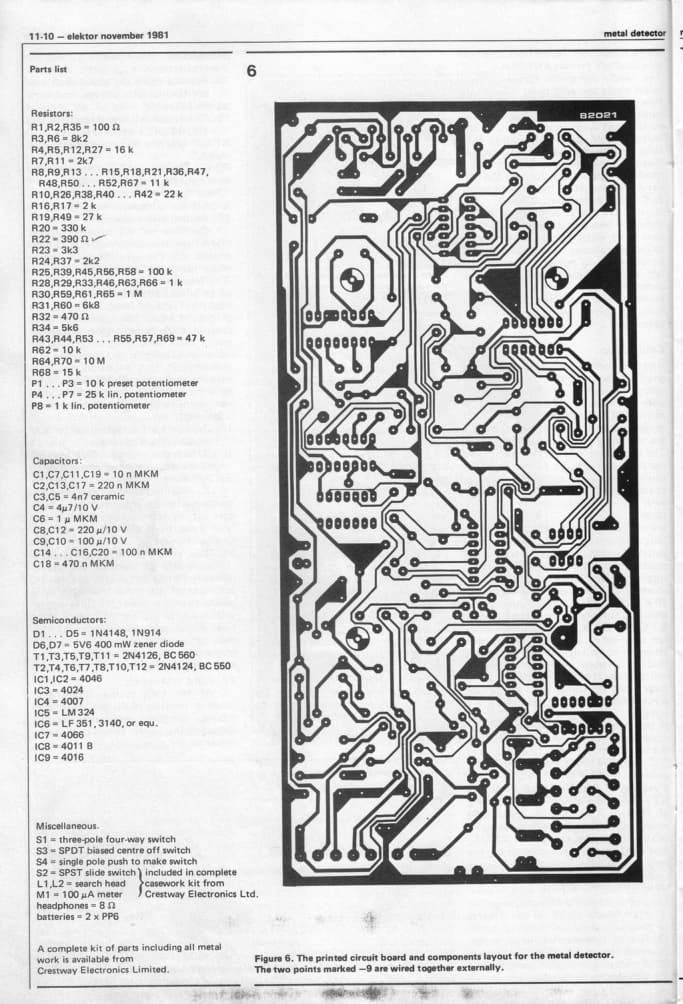 11-10 — elektor november 1981
metal detector
Parts list
6
Resistors:
R1,R2,R35 = 100 Ω
R3,R6 = 8k2
R4,R5,R12,R27 = 16 k
R7,R11 = 2k7
R8,R9,R13 . . . R15,R18,R21,R36,R47,
R48,R50 . . . R52,R67 = 11 k
R10,R26,R38,R40 . . . R42 = 22 k
R16,R17 = 2 k
R19,R49 = 27 k
R20 = 330 k
R22 = 390 Ω
R23 = 3k3
R24,R37 = 2k2
R25,R39,R45,R56,R58 = 100 k
R28,R29,R33,R46,R63,R66 = 1 k
R30,R59,R61,R65 = 1 M
R31,R60 = 6k8
R32 = 470 Ω
R34 = 5k6
R43,R44,R53 . . . R55,R57,R69 = 47 k
R62 = 10 k
R64,R70 = 10 M
R68 = 15 k
P1 . . . P3 = 10 k preset potentiometer
P4 . . . P7 = 25 k lin. potentiometer
P8 = 1 k lin. potentiometer
Capacitors:
C1,C7,C11,C19 = 10 n MKM
C2,C13,C17 = 220 n MKM
C3,C5 = 4n7 ceramic
C4 = 4µ7/10 V
C6 = 1 µ MKM
C8,C12 = 220 µ/10 V
C9,C10 = 100 µ/10 V
C14 . . . C16,C20 = 100 n MKM
C18 = 470 n MKM
Semiconductors:
D1 . . . D5 = 1N4148, 1N914
D6,D7 = 5V6 400 mW zener diode
T1,T3,T5,T9,T11 = 2N4126, BC 560
T2,T4,T6,T7,T8,T10,T12 = 2N4124, BC 550
IC1,IC2 = 4046
IC3 = 4024
IC4 = 4007
IC5 = LM 324
IC6 = LF 351, 3140, or equ.
IC7 = 4066
IC8 = 4011 B
IC9 = 4016
Miscellaneous.
S1 = three-pole four-way switch
S3 = SPDT biased centre off switch
S4 = single pole push to make switch
S2 = SPST slide switch } included in complete
L1,L2 = search head } casework kit from
M1 = 100 µA meter } Crestway Electronics Ltd.
headphones = 8 Ω
batteries = 2 x PP6
A complete kit of parts including all metal
work is available from
Crestway Electronics Limited.
82021
Figure 6. The printed circuit board and components layout for the metal detector.
The two points marked —9 are wired together externally.